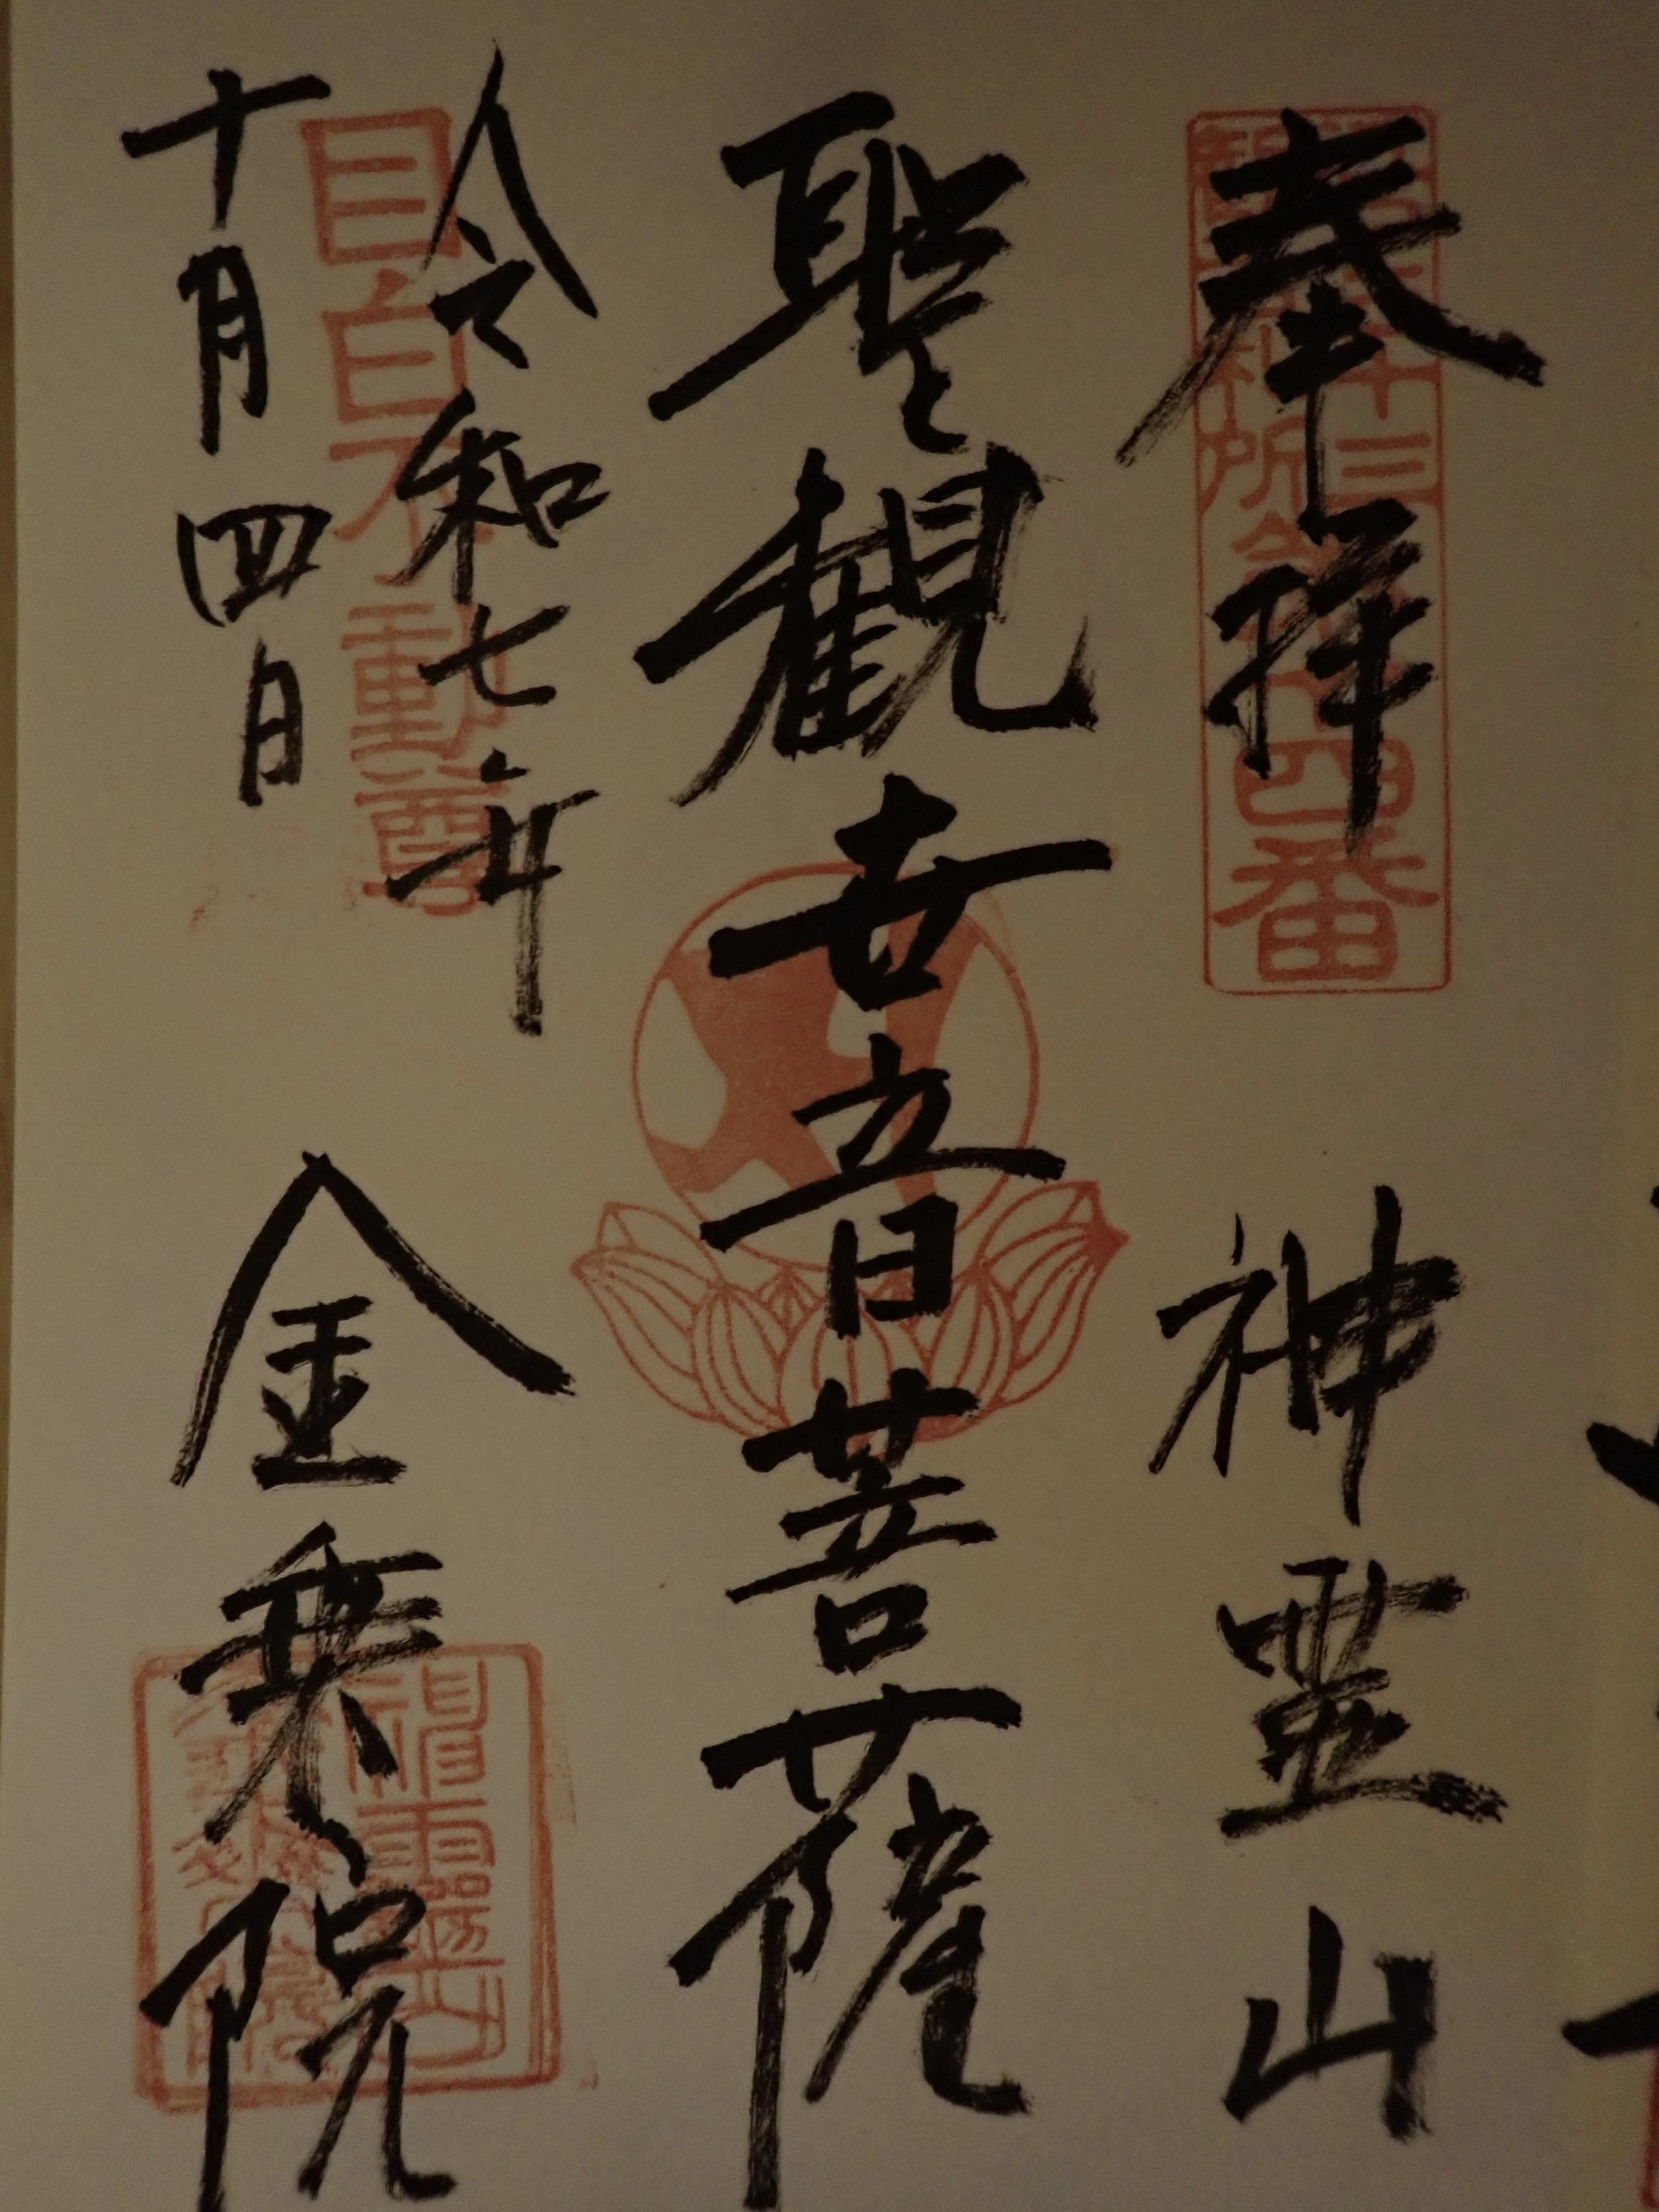 奉拝　神霊山
聖観世音菩薩
令和七年
十月四日
金乗院
目白不動尊
四番